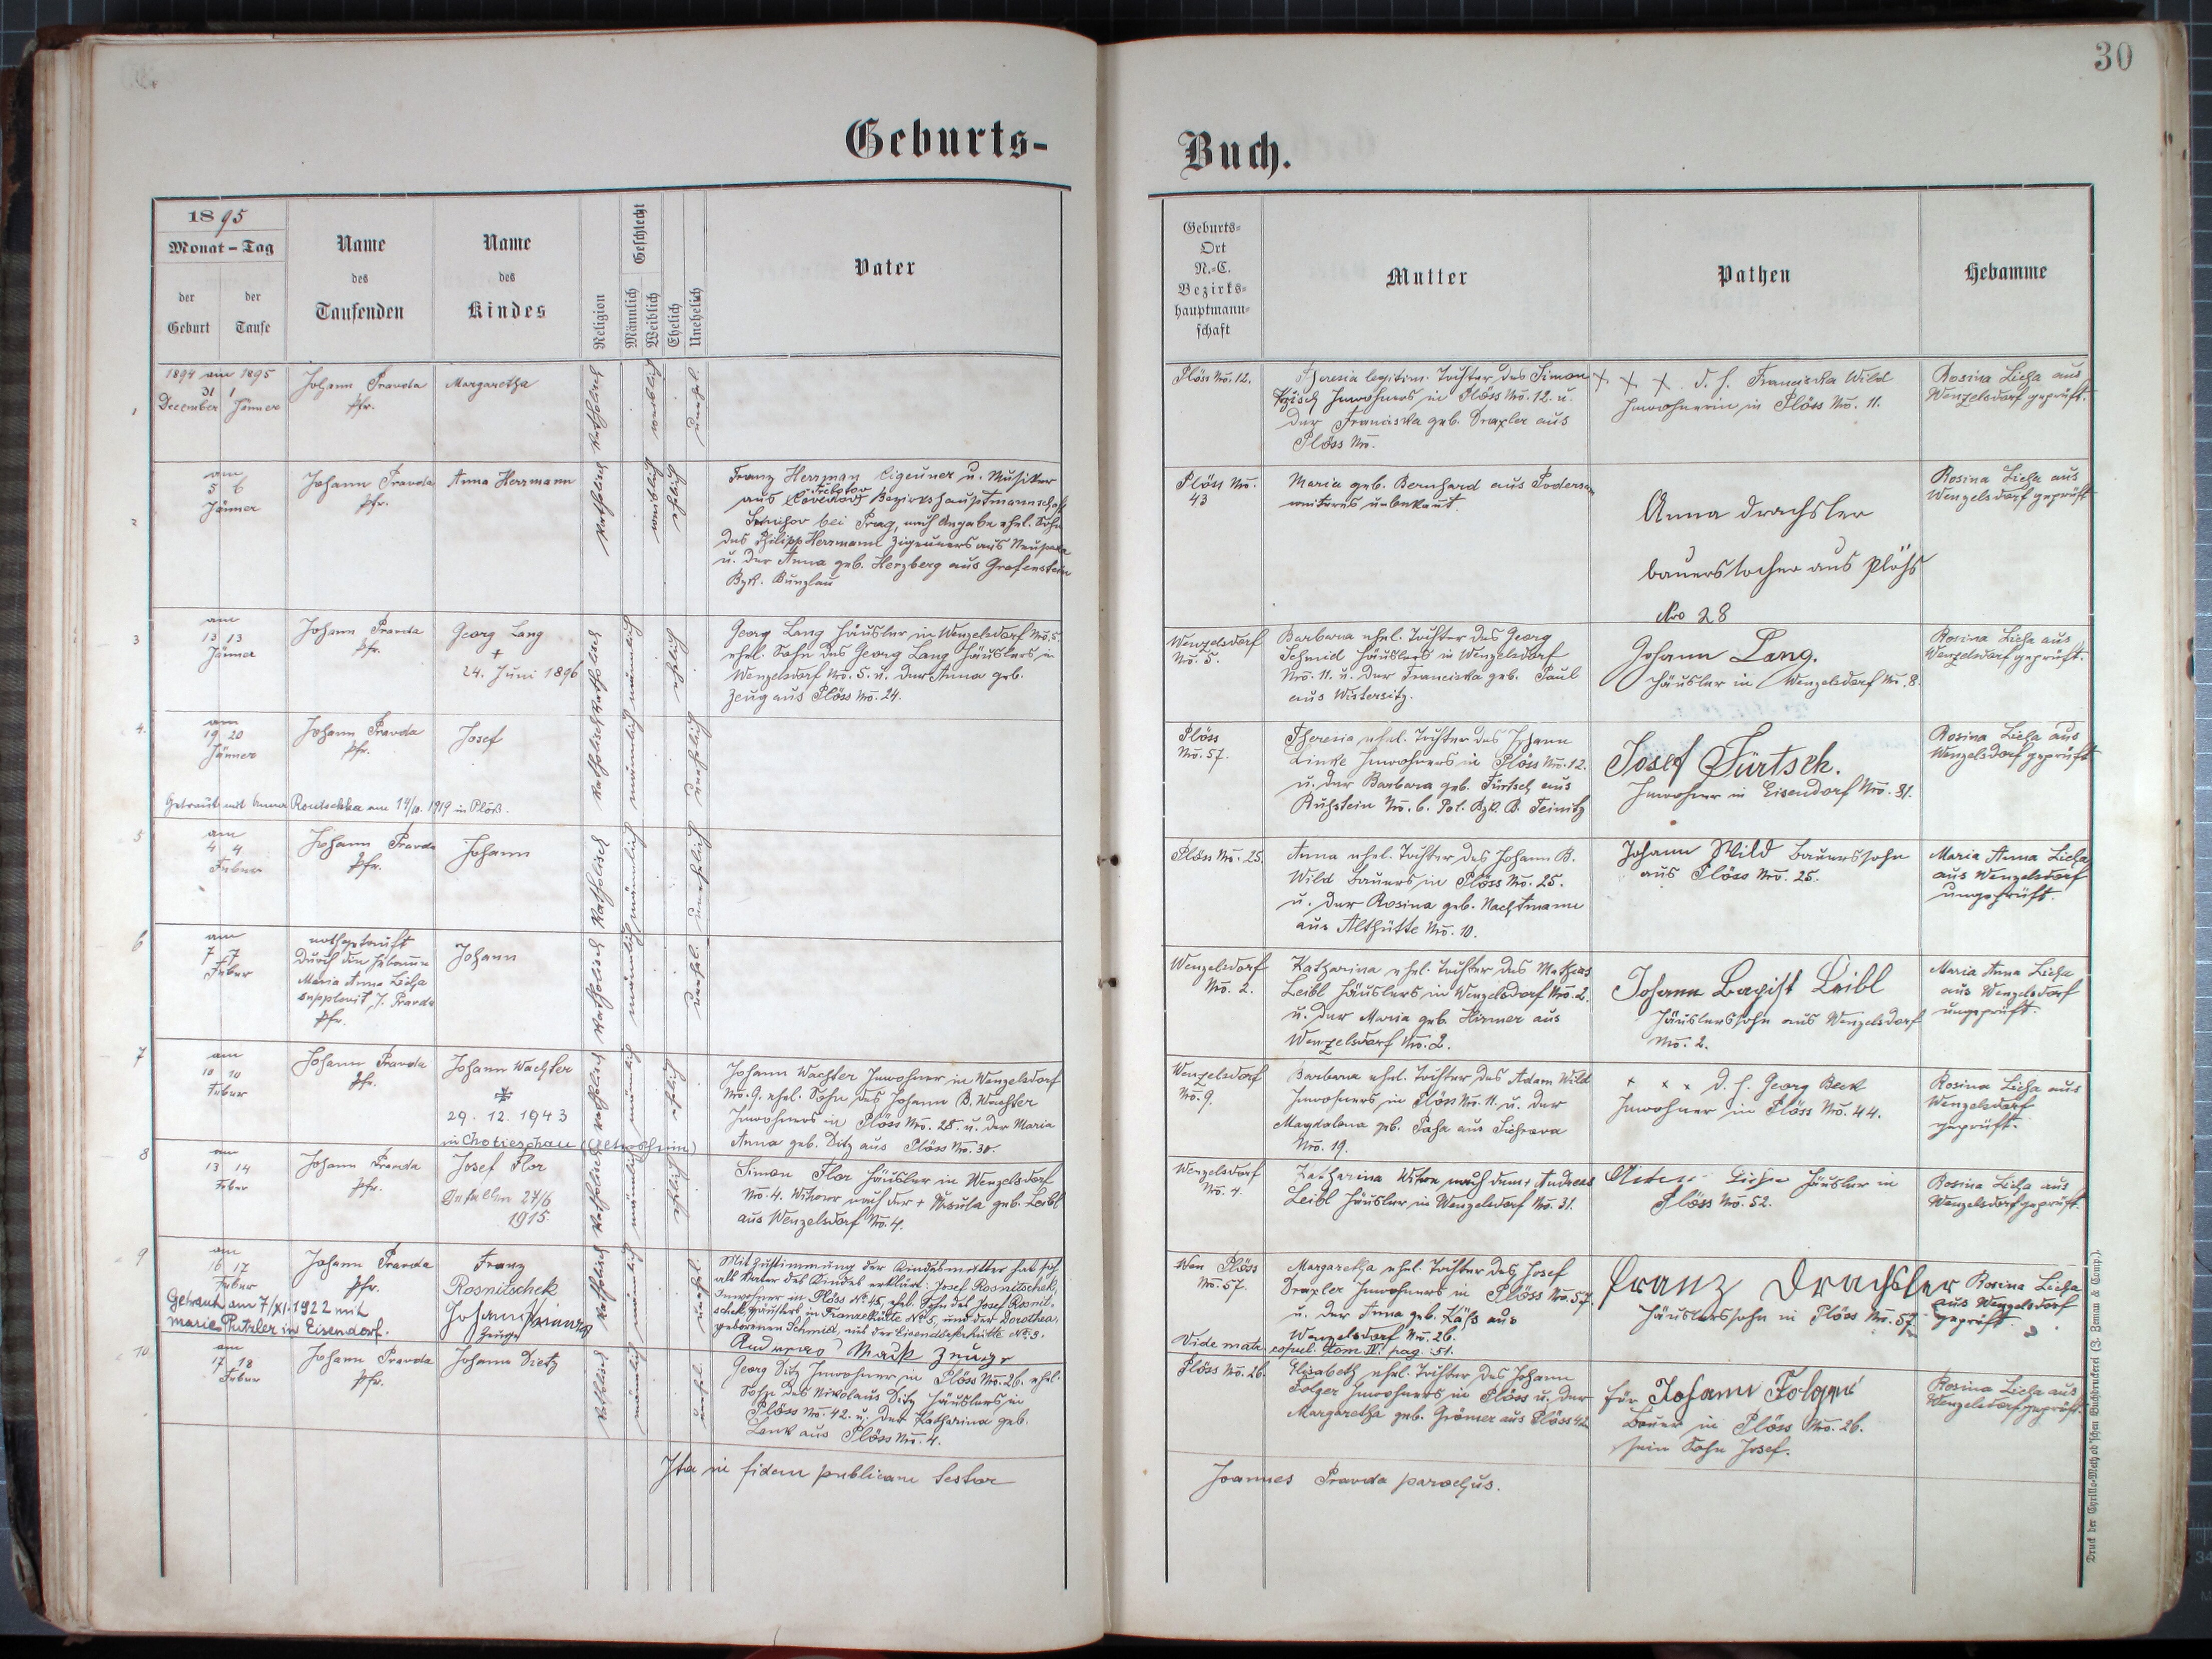 30
Geburts-
Buch.
1895
Monat - Tag
der Geburt
der Taufe
Name des Taufenden
Name des Kindes
Religion
Geschlecht
Männlich
Weiblich
Ehelich
Unehelich
Vater
Geburts-
Ort
N.-C.
Bezirks-
hauptmann-
schaft
Mutter
Pathen
Hebamme
1
1894 am 1895
31 1
December Jänner
Johann Pravda
Pfr.
Margaretha
katholisch
weiblich
unehel.
Plöss No. 12.
Theresia legitim. Tochter des Simon
Inwohners in Plöss No. 12. u.
der Franciska geb. Drexler aus
Plöss No.
+ + + d. h. Franciska Wild
Inwohnerin in Plöss No. 11.
Rosina Licha aus
Wenzelsdorf geprüft.
2
am
5 6
Jänner
Johann Pravda
Pfr.
Anna Herrmann
katholisch
weiblich
ehelich
Franz Herrman Zigeuner u. Musiker
aus Bezirkshauptmannschaft
Smichov bei Prag, nach Angabe ehel. Sohn
des Philipp Herrmann Zigeuners aus Neupaka
u. der Anna geb. Herzberg aus Grafenstein
Bzk. Bunzlau
Plöss No.
43
Maria geb. Bernhard aus Podersam
weiteres unbekannt.
Anna Drachsler
bauerstocher aus Plöhs
Nro 28
Rosina Licha aus
Wenzelsdorf geprüft
3
am
13 13
Jänner
Johann Pravda
Pfr.
Georg Lang
+
24. Juni 1896
katholisch
männlich
ehelich
Georg Lang Häusler in Wenzelsdorf No. 5.
ehel. Sohn des Georg Lang Häuslers in
Wenzelsdorf No. 5. u. der Anna geb.
Zeug aus Plöss No. 24.
Wenzelsdorf
No. 5.
Barbara ehel. Tochter des Georg
Schmid Häuslers in Wenzelsdorf
No. 11. u. der Franciska geb. Paul
aus Wistersitz.
Johann Lang.
Häusler in Wenzelsdorf No. 8.
Rosina Licha aus
Wenzelsdorf geprüft.
4.
am
19 20
Jänner
Johann Pravda
Pfr.
Josef
katholisch
männlich
unehelich
Getraut mit Anna Routschka am 14/10. 1919 in Plöß.
Plöss
No. 57.
Theresia ehel. Tochter des Johann
Linke Inwohners in Plöss No. 12.
u. der Barbara geb. Fürtsch aus
Ruhstein No. 6. Pol. Bzk. B. Teinitz
Josef Fürtsch.
Inwohner in Eisendorf No. 31.
Rosina Licha aus
Wenzelsdorf geprüft
5
am
4 4
Feber
Johann Pravda
Pfr.
Johann
katholisch
männlich
unehelich
Plöss No. 25.
Anna ehel. Tochter des Johann B.
Wild Bauers in Plöss No. 25.
u. der Rosina geb. Nachtmann
aus Althütte No. 10.
Johann Wild Bauerssohn
aus Plöss No. 25.
Maria Anna Licha
aus Wenzelsdorf
ungeprüft.
6
am
7 7
Feber
nothgetauft
durch die Hebamme
Maria Anna Licha
supplevit J. Pravda
Pfr.
Johann
katholisch
männlich
unehel.
Wenzelsdorf
No. 2.
Katharina ehel. Tochter des Mathias
Leibl Häuslers in Wenzelsdorf No. 2.
u. der Maria geb. Hirmer aus
Wenzelsdorf No. 2.
Johann Bapist Leibl
Häuslerssohn aus Wenzelsdorf
No. 2.
Maria Anna Licha
aus Wenzelsdorf
ungeprüft.
7
am
10 10
Feber
Johann Pravda
Pfr.
Johann Wachter
29. 12. 1943
in Chotieschau (Altersheim)
katholisch
männlich
ehelich
Johann Wachter Inwohner in Wenzelsdorf
No. 9. ehel. Sohn des Johann B. Wachter
Inwohners in Plöss No. 25. u. der Maria
Anna geb. Ditz aus Plöss No. 30.
Wenzelsdorf
No. 9.
Barbara ehel. Tochter des Adam Wild
Inwohners in Plöss No. 11. u. der
Magdalena geb. Paha aus Sichrova
No. 19.
+ + + d. h. Georg Beck
Inwohner in Plöss No. 44.
Rosina Licha aus
Wenzelsdorf
geprüft.
8
am
13 14
Feber
Johann Pravda
Pfr.
Josef Flor
Gefallen 27/6
1915.
katholisch
männlich
ehelich
Simon Flor Häusler in Wenzelsdorf
No. 4. Witwer nach der + Ursula geb. Leibl
aus Wenzelsdorf No. 4.
Wenzelsdorf
No. 4.
Katharina Witwe nach dem + Andreas
Leibl Häusler in Wenzelsdorf No. 31.
Licha Häusler in
Plöss No. 52.
Rosina Licha aus
Wenzelsdorf geprüft.
9
am
16 17
Feber
Johann Pravda
Pfr.
Franz
Rosnitschek
Johann
Zeuge
Getraut am 7/XI. 1922 mit
Marie Putzler in Eisendorf.
katholisch
männlich
unehel.
Mit Zustimmung der Kindesmutter hat sich
als Vater des Kindes erklärt: Josef Rosnitschek,
Inwohner in Plöss No. 45, ehel. Sohn des Josef Rosnit-
schek, Häuslers in Franzelhütte No. 5, und der Dorothea,
geborenen Schmid, aus der Eisendorferhütte No. 9.
Andreas Mack Zeuge
Plöss
No. 57.
Margaretha ehel. Tochter des Josef
Drexler Inwohners in Plöss No. 57.
u. der Anna geb. Käss aus
Wenzelsdorf No. 26.
Vide mat. copul. tom IV. pag. 51.
Franz Drachsler
Häuslerssohn in Plöss No. 57
Rosina Licha
aus Wenzelsdorf
geprüft.
10
am
17 18
Feber
Johann Pravda
Pfr.
Johann Dietz
katholisch
männlich
unehel.
Georg Ditz Inwohner in Plöss No. 26. ehel.
Sohn des Nikolaus Ditz Häuslers in
Plöss No. 42. u. der Katharina geb.
Lenk aus Plöss No. 4.
Plöss No. 26.
Elisabeth ehel. Tochter des Johann
Folger Inwohners in Plöss u. der
Margaretha geb. Grömer aus Plöss 42
für Johann Folger
Bauer in Plöss No. 26.
sein Sohn Josef.
Rosina Licha aus
Wenzelsdorf geprüft.
Ita in fidem publicam testor
Joannes Pravda parochus.
Druck der Cyrillo-Method'schen Buchdruckerei (J. Zeman & Comp.).